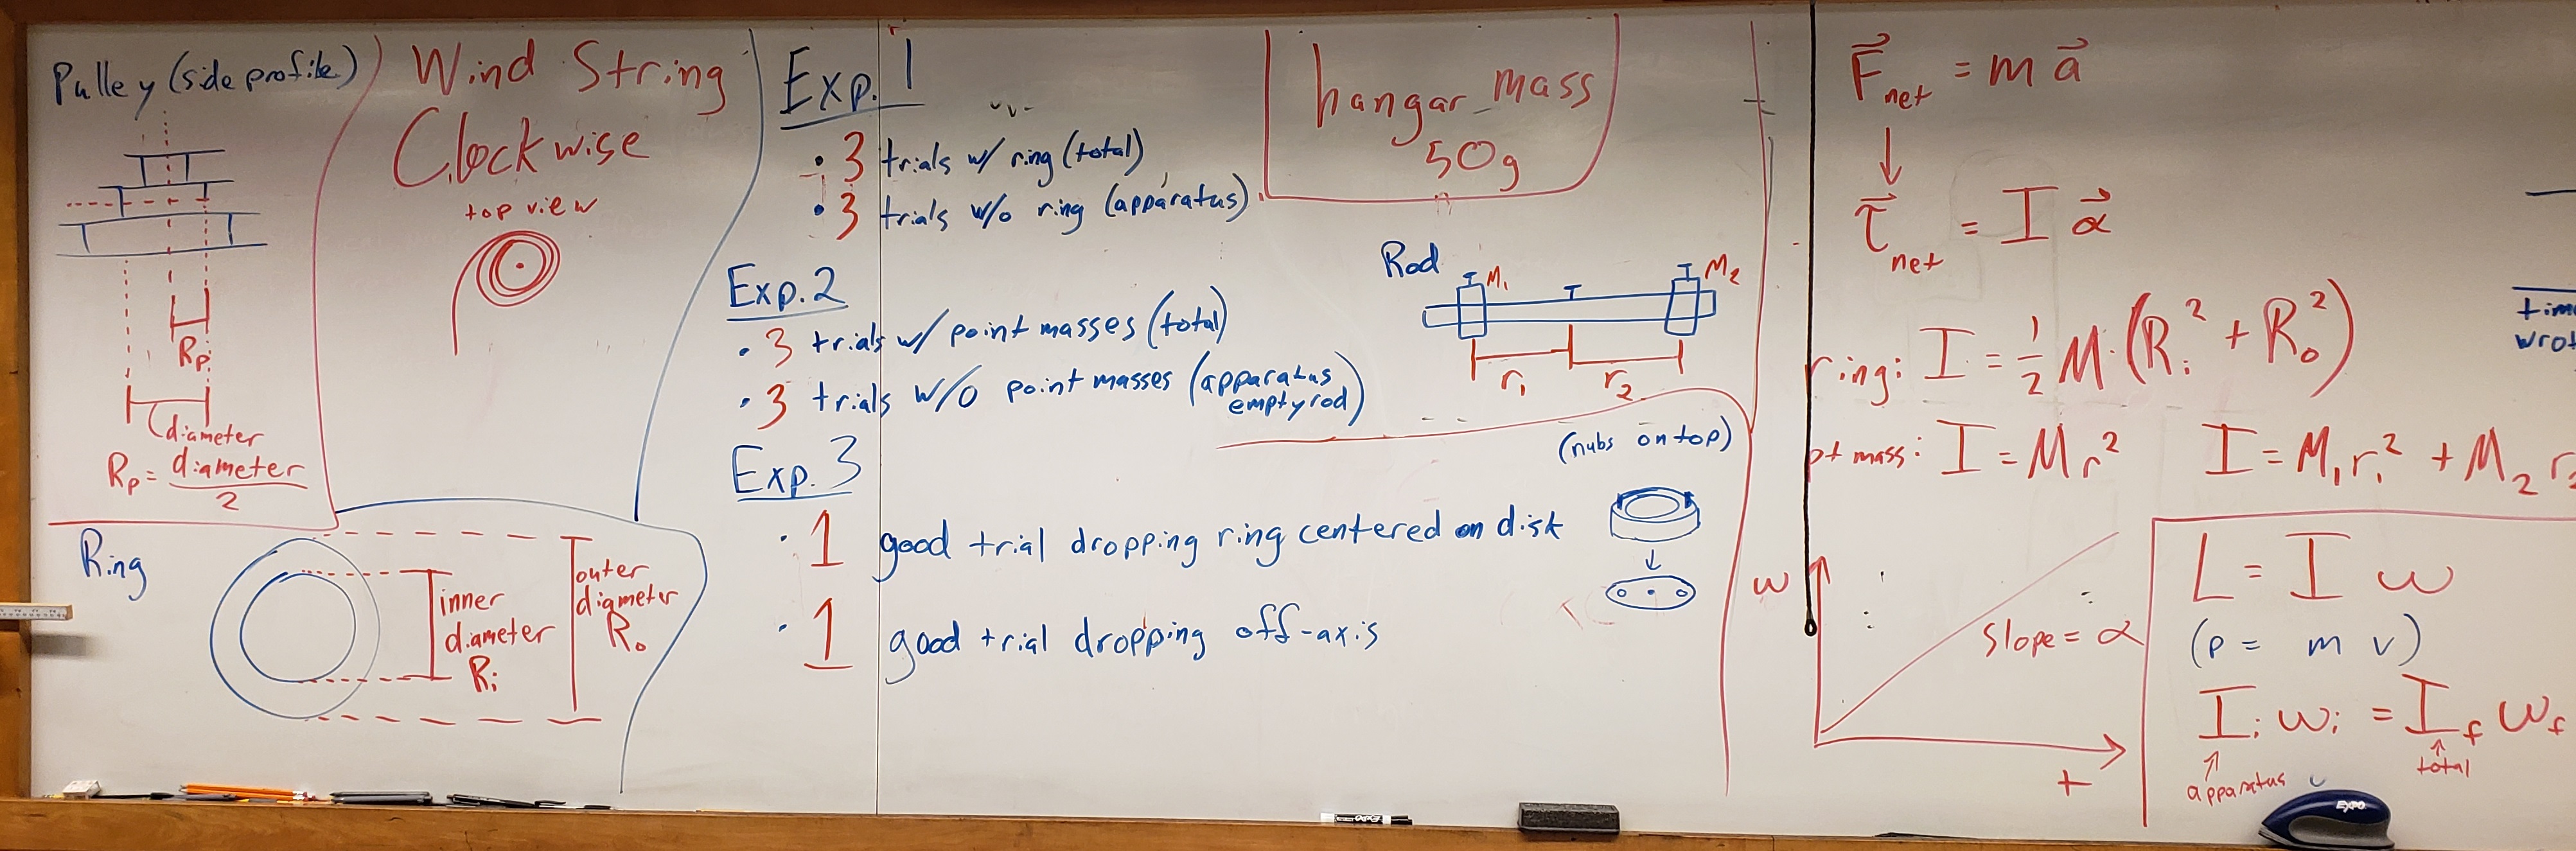 Pulley (side profile)
Rp
diameter
Rp = diameter
2
Wind String
Clockwise
top view
Ring
inner
diameter
Ri
outer
diameter
Ro
Exp. 1
• 3 trials w/ ring (total)
• 3 trials w/o ring (apparatus)
hangar mass
50g
Exp. 2
• 3 trials w/ point masses (total)
• 3 trials w/o point masses (apparatus
empty rod)
Rod
M₁
M₂
r₁
r₂
Exp. 3
(nubs on top)
• 1 good trial dropping ring centered on disk
• 1 good trial dropping off-axis
F⃗net = m a⃗
↓
τ⃗net = I α⃗
ring: I = 1/2 M (Ri² + Ro²)
pt mass: I = M r² I = M₁ r₁² + M₂ r₂
ω
slope = α
t
L = I ω
(p = m v)
Ii ωi = If ωf
↑ apparatus
↑ total
time
wrot
EXPO
EXPO